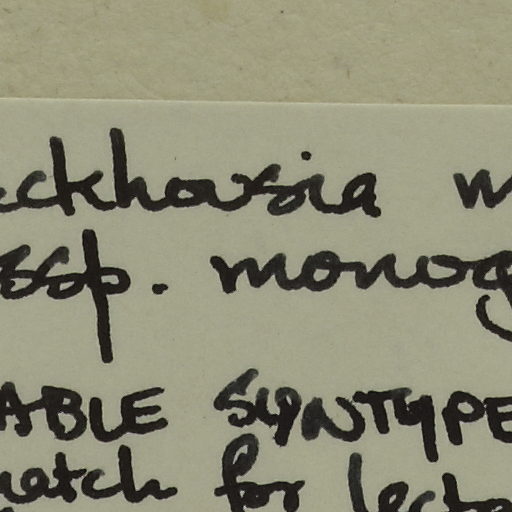 ackhousia m
ssp. monog
ABLE SYNTYPE
match for lecto